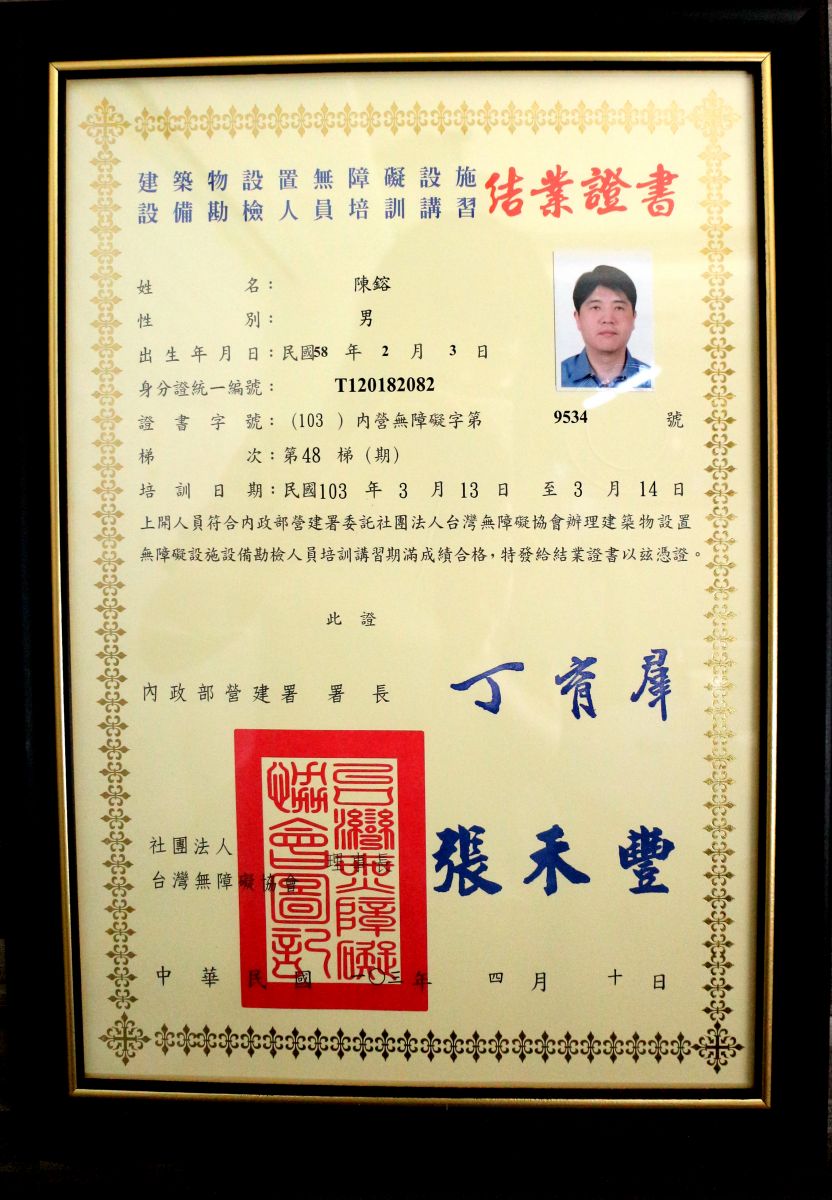 建築物設置無障礙設施
設備勘檢人員培訓講習 結業證書
姓名：陳鎔
性別：男
出生年月日：民國58年2月3日
身分證統一編號：T120182082
證書字號：(103)內營無障礙字第9534號
梯次：第48梯(期)
培訓日期：民國103年3月13日至3月14日
上開人員符合內政部營建署委託社團法人台灣無障礙協會辦理建築物設置
無障礙設施設備勘檢人員培訓講習期滿成績合格，特發給結業證書以茲憑證。
此證
內政部營建署 署長 丁育羣
社團法人
台灣無障礙協會 理事長 張禾豐
台灣無障礙
協會圖記
中華民國一〇三年四月十日